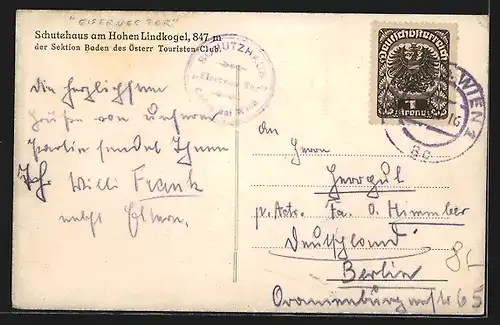 "EISERNES TOR"
Schutzhaus am Hohen Lindkogel, 847 m
der Sektion Baden des Österr Touristen-Club.
SCHUTZHAUS
Eisernes Tor
Deutschösterreich
1
Krone
WIEN
die herzlichsten
Grüße von unserer
Partie sendet Ihnen
Ihr Willi Frank
nebst Eltern.
An
Herrn
p. Adr. Fa. O. Himmler
Deutschland
Berlin
Oranienburgerstr 65